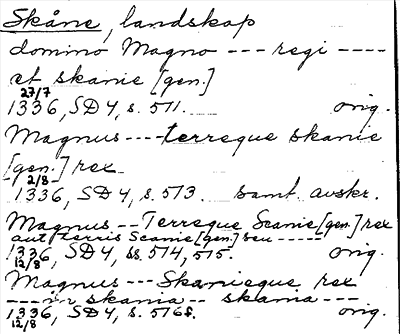 Skåne, landskap
domino Magno --- regi ----
et skanie [gen.]
27/7
1336, SD 4, s. 511. orig.
Magnus ---- terreque skanie
[gen.] rex
2/8
1336, SD 4, s. 513. samt. avskr.
Magnus -- Terreque Scanie [gen.] rex
aut terris Scanie [gen.] seu -----
1336, SD 4, ss. 514, 515. orig.
12/8
Magnus --- Skanieque rex
---- in skania -- skania ---
1336, SD 4, s. 516f. orig.
12/8